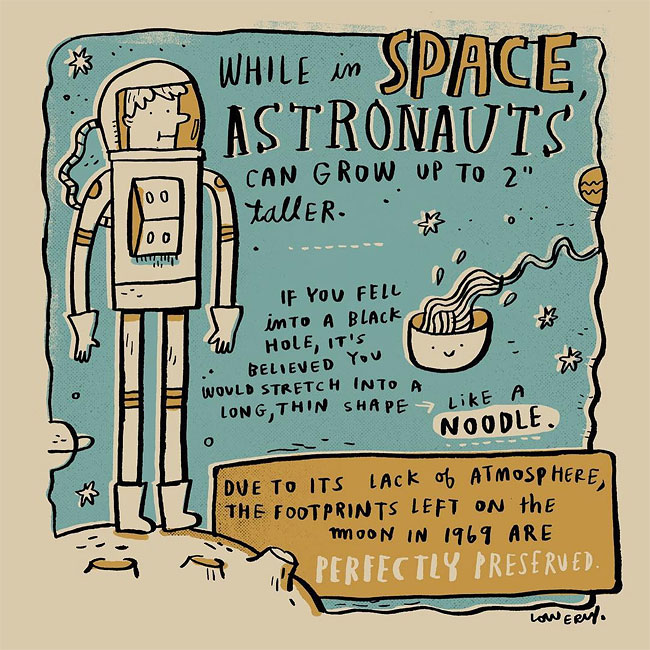 WHILE in SPACE,
ASTRONAUTS
CAN GROW UP TO 2"
taLLER.
IF YOU FELL
into A BLACK
HOLE, IT'S
BELIEVED YOU
WOULD STRETCH INTO A
LONG, THIN SHAPE → LIKE A
NOODLE.
DUE TO ITS LACK of ATMOSPHERE,
THE FOOTPRINTS LEFT ON the
moon IN 1969 ARE
PERFECTLY PRESERVED.
LOWERY.